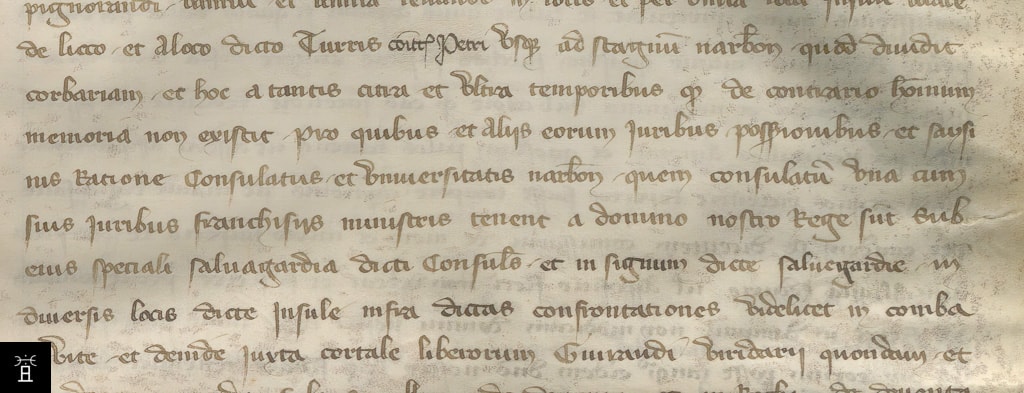 pignorandi
de licco et a loco dicto Turris Petri vsq ad stagnū narbon quod diuidit
corbariam et hoc a tantis citra et vltra temporibus qp de contrario hominum
memoria non existit pro quibus et alijs eorum Juribus possessionibus et saysi
nis Ratione Consulatus et vniuersitatis narbon quem consulatū vna cum
suis Juribus franchisijs ministris tenent a domino nostro Rege sūt sub
eius speciali saluagardia dicti Consules et in signum dicte saluegardie in
diuersis locis dicte Insule infra dictas confrontationes videlicet in comba
et deinde Juxta cortale liberorum Guiraudi viridarij quondam et